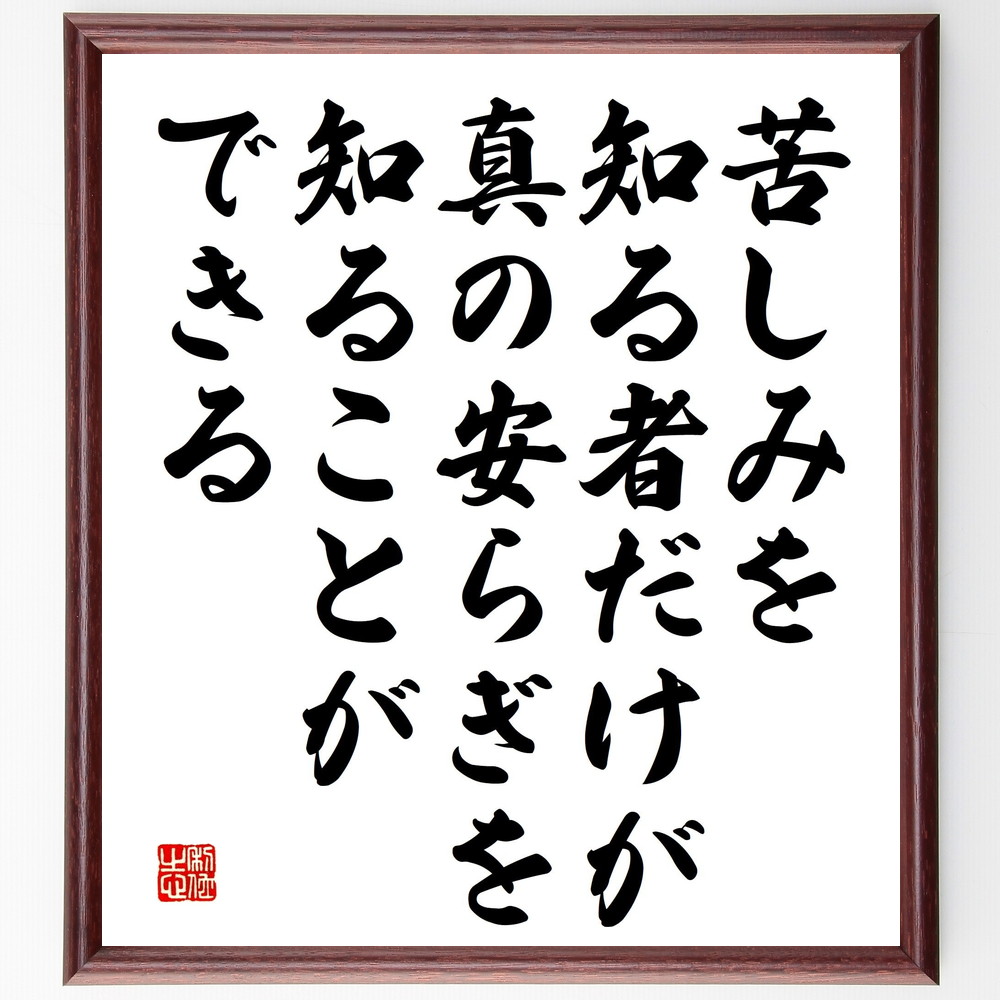 苦しみを
知る者だけが
真の安らぎを
知ることが
できる